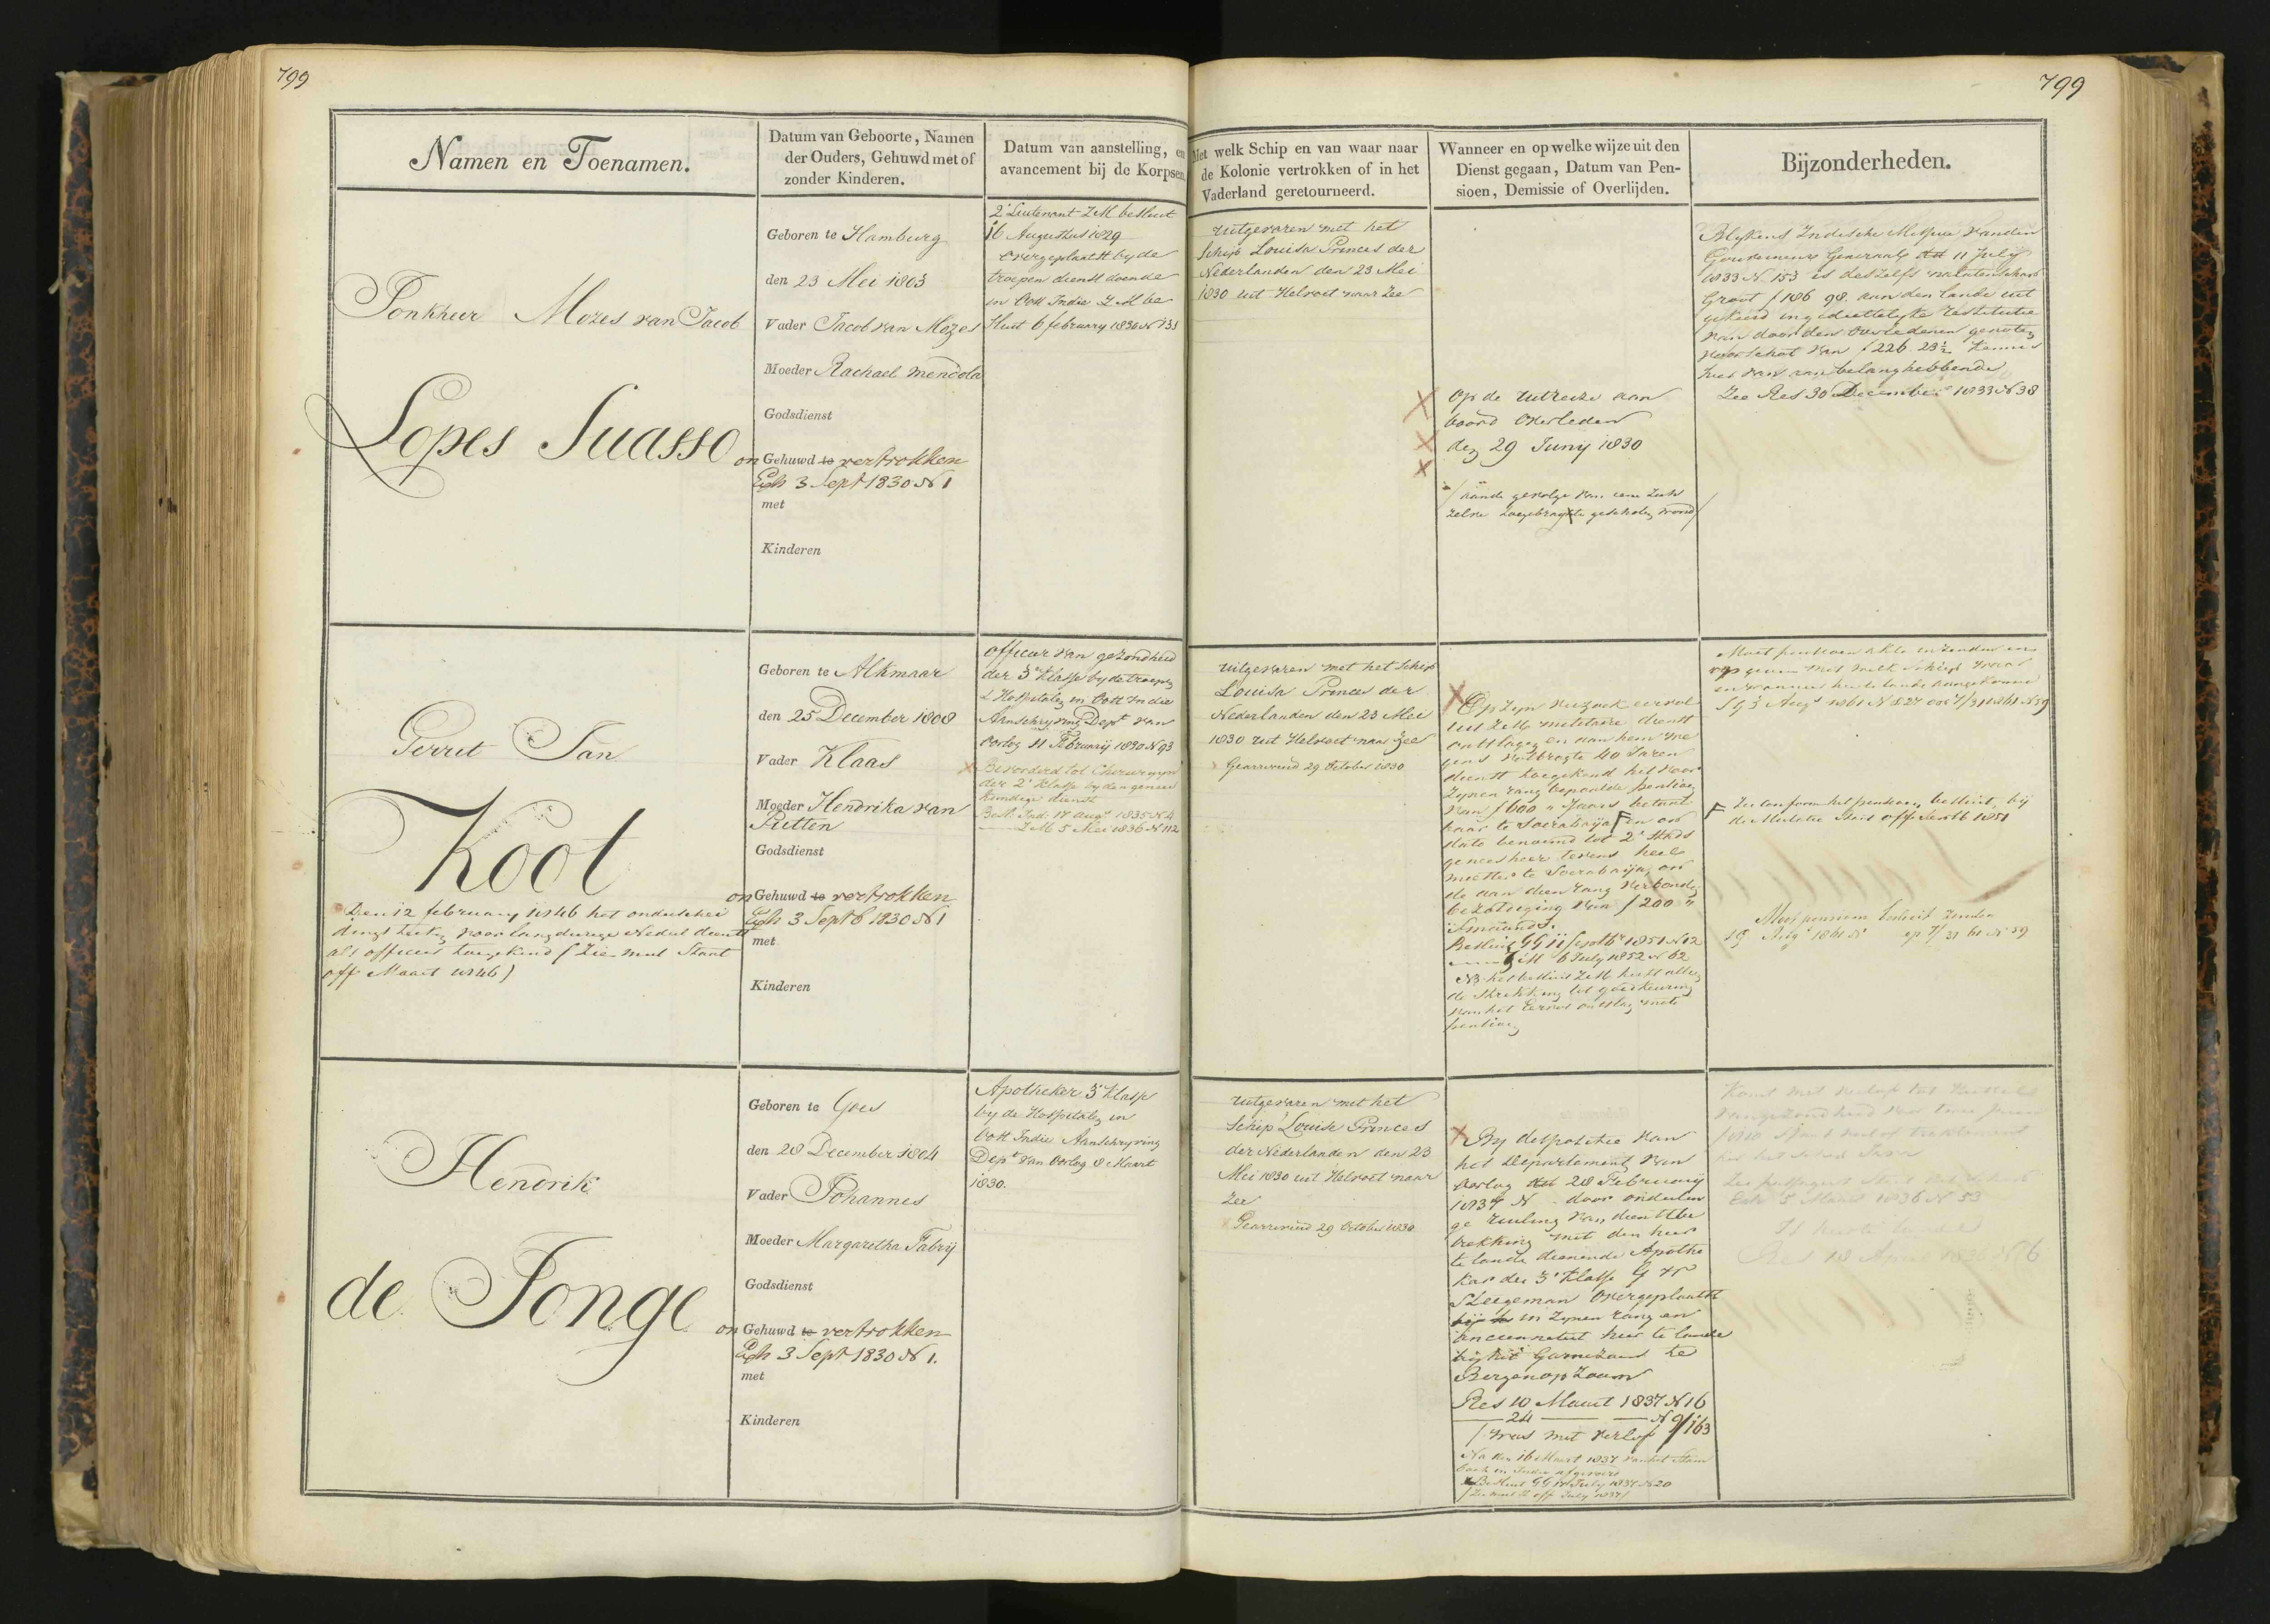 799
799
Namen en Toenamen.
Datum van Geboorte, Namen
der Ouders, Gehuwd met of
zonder Kinderen.
Datum van aanstelling, en
avancement bij de Korpsen.
Met welk Schip en van waar naar
de Kolonie vertrokken of in het
Vaderland geretourneerd.
Wanneer en op welke wijze uit den
Dienst gegaan, Datum van Pen-
sioen, Demissie of Overlijden.
Bijzonderheden.
Jonkheer Mozes van Jacob
Lopes Suasso
Geboren te Hamburg
den 23 Mei 1803
Vader Jacob van Mozes
Moeder Rachael mendola
Godsdienst
on Gehuwd te vertrokken
3 Sept 1830 N 1
met
Kinderen
2e Luitenant ZM besluit
16 Augustus 1829
overgeplaatst by de
troepen dienst doende
in Oost Indie ZM be
sluit 6 february 1830 N 131
uitgevaren met het
Schip Louisa Princes der
Nederlanden den 23 Mei
1830 uit Helvoet naar Zee
op de uitreize aan
boord overleden
den 29 Juny 1830
aande gevolge van een zich
zelve toegebragte geschoten wond
Blykens Indische Missive vanden
Gouverneur Generaal dd 11 July
1833 N 153 is deszelfs nalatenschap
Groot f 186 98 aan den lande uit
gekeerd in gedeeltelyke restitutie
van door den overledenen genoten
voorschot van f 226. 23½ Kennis
hier van aan belanghebbende
Zee Res 30 December 1833 N 38
Gerrit Jan
Koot
Den 12 february 1846 het onderschei
dings teeken voor langdurige Nederl dienst
als officier toegekend (Zie mut Staat
off Maart 1846)
Geboren te Alkmaar
den 25 December 1808
Vader Klaas
Moeder Hendrika van
Putten
Godsdienst
on Gehuwd te vertrokken
3 Sept 1830 N 1
met
Kinderen
officier van gezondheid
der 3e Klasse by de troepen
& Hospitalen in Oost Indie
Aanschryving Dept van
Oorlog 11 February 1830 N 93
Bevorderd tot Chirurgyn
der 2e Klasse by den genees
kundigen dienst
Besl. Ind. 17 Augt 1835 N 4
ZM 5 Mei 1836 N 112
uitgevaren met het Schip
Louisa Princes der
Nederlanden den 23 Mei
1830 uit Helvoet naar Zee
Gearriveerd 29 October 1830
Op zyn verzoek eervol
uit ZMs militaire dienst
ontslagen en aan hem we
gens volbragte 40 Jaren
dienst toegekend het voor
zynen rang bepaalde pensioen
van f 1600 " Jaars betaal
baar te Soerabaija en op
dato benoemd tot 2e Stads
geneesheer tevens heel
meester te Soerabaija, op
de aan dien rang verbonden
bezoldiging van f 200 "
Smaands.
Besluit GG 11 Septbr 1851 N 12
ZM 6 July 1852 N 62
NB het besluit ZM heeft alleen
de strekking tot goedkeuring
van het Eervol ontslag met
pensioen
Moet pensioen akte inzenden en
op geven met welk Schip, waar
en wanneer hier te lande aangekomen
Zie conform het pensioens besluit, bij
de Mutatie Staat off Septb 1851
Moet pensioen besluit zenden
Hendrik
de Jonge
Geboren te Goes
den 28 December 1804
Vader Johannes
Moeder Margaretha Fabrij
Godsdienst
on Gehuwd te vertrokken
3 Sept 1830 N 1.
met
Kinderen
Apotheker 3e Klasse
by de Hospitalen in
Oost Indie Aanschryving
Dept van Oorlog 8 Maart
1830.
uitgevaren met het
Schip Louise Princes
der Nederlanden den 23
Mei 1830 uit Helvoet naar
Zee
Gearriveerd 29 October 1830
By dispositie van
het Departement van
Oorlog dd 28 February
1837 N door onderlin
ge ruiling van dienstbe
trekking met den hier
te lande dienende Apothe
kar der 3e Klasse G W
Steegeman overgeplaatst
in zynen rang en
ancienneteit hier te lande
bij het Garnizoens te
Bergen op Zoom
Res 10 Maart 1837 N 16
24 N 9/163
was met verlof
Na den 16 Maart 1837 van het Stam
boek in Indie afgevoerd
Besluit GG July 1837 N 20
off July 1837